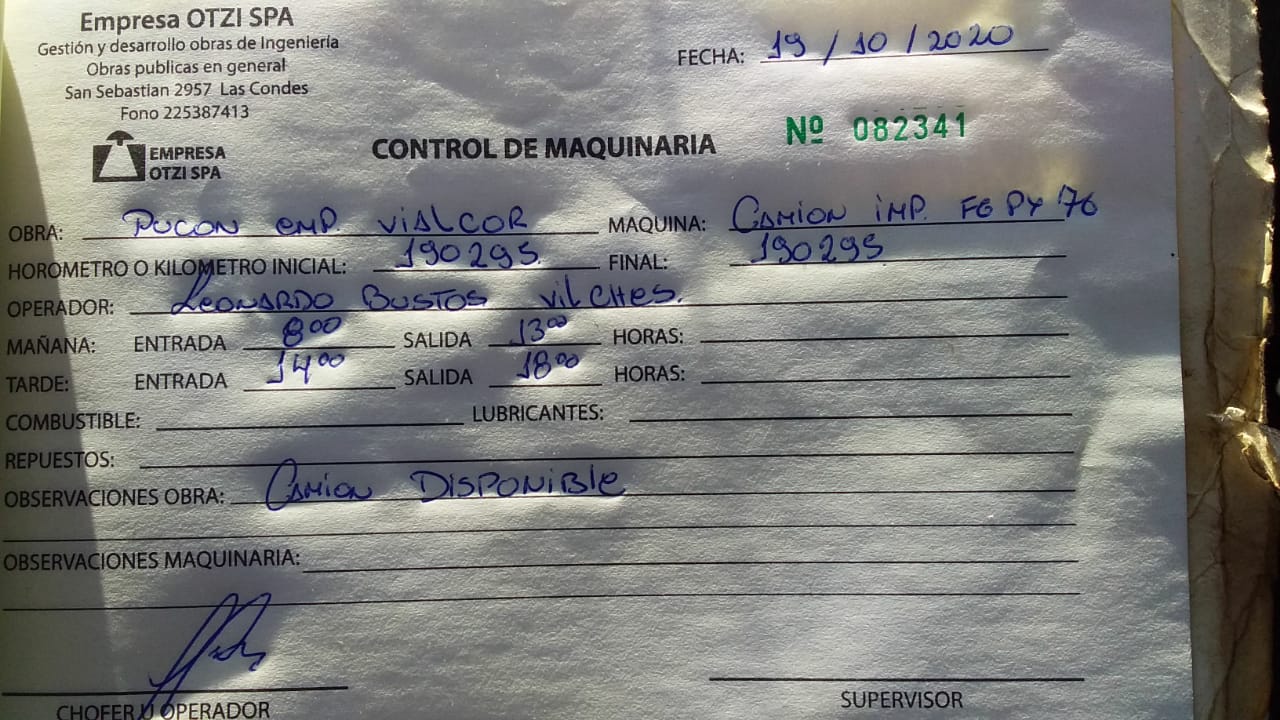 Empresa OTZI SPA
Gestión y desarrollo obras de Ingeniería
Obras publicas en general
San Sebastian 2957 Las Condes
Fono 225387413
FECHA: 19 / 10 / 2020
EMPRESA
OTZI SPA
CONTROL DE MAQUINARIA
Nº 082341
OBRA: PUCON EMP. VIALCOR MAQUINA: CAMION IMP. FG PY 76
HOROMETRO O KILOMETRO INICIAL: 190295 FINAL: 190295
OPERADOR: LEONARDO BUSTOS VILCHES.
MAÑANA: ENTRADA 8:00 SALIDA 13:00 HORAS:
TARDE: ENTRADA 14:00 SALIDA 18:00 HORAS:
COMBUSTIBLE: LUBRICANTES:
REPUESTOS:
OBSERVACIONES OBRA: CAMION DISPONIBLE
OBSERVACIONES MAQUINARIA:
CHOFER U OPERADOR SUPERVISOR